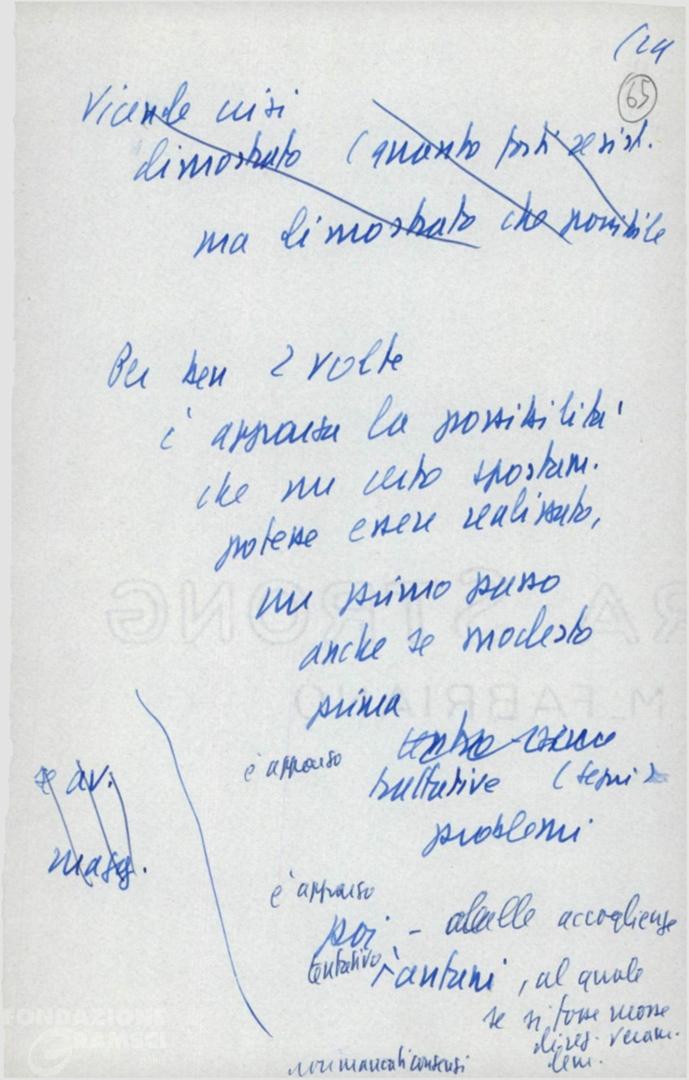 (24
65
Vicende crisi
dimostrato (quanto forti resist.
ma dimostrato che possibile
Per ben 2 volte
è apparsa la possibilità
che un certo spostam.
potesse essere realizzato,
un primo passo
anche se modesto
prima
è apparso
trattative (temi
problemi
se av.
mass.
è apparso
poi - dalle accoglienze
tentativo Fanfani, al quale
se si fosse mosso
non mancati consensi
dem.
RA STRONG
M_FABRIANO
FONDAZIONE
GRAMSCI